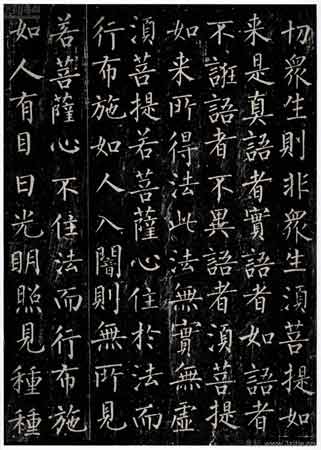 切眾生則非眾生須菩提如
来是真語者實語者如語者
不誑語者不異語者須菩提
如来所得法此法無實無虛
須菩提若菩薩心住於法而
行布施如人入闇則無所見
若菩薩心不住法而行布施
如人有目日光明照見種種